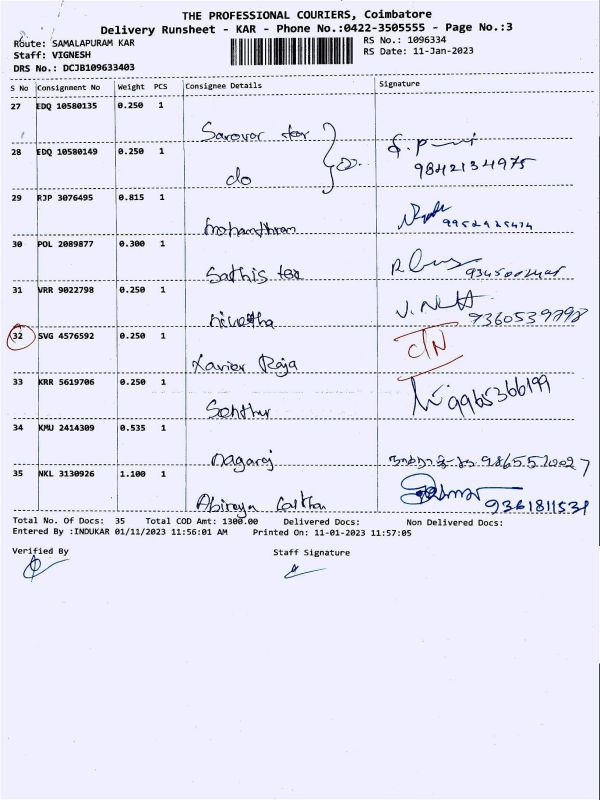 THE PROFESSIONAL COURIERS, Coimbatore
Delivery Runsheet - KAR - Phone No.:0422-3505555 - Page No.:3
Route: SAMALAPURAM KAR
RS No.: 1096334
Staff: VIGNESH
RS Date: 11-Jan-2023
DRS No.: DCJB109633403
S No Consignment No Weight PCS Consignee Details Signature
27 EDQ 10580135 0.250 1
28 EDQ 10580149 0.250 1
do
9842134975
29 RJP 3076495 0.815 1
30 POL 2089877 0.300 1
Sathis
31 VRR 9022798 0.250 1
Nivetha
32 SVG 4576592 0.250 1 C/N
Xavier Raja
33 KRR 5619706 0.250 1
9965366199
34 KMU 2414309 0.535 1
Nagaraj
35 NKL 3130926 1.100 1
Abiraya
9361811531
Total No. Of Docs: 35 Total COD Amt: 1300.00 Delivered Docs: Non Delivered Docs:
Entered By :INDUKAR 01/11/2023 11:56:01 AM Printed On: 11-01-2023 11:57:05
Verified By Staff Signature